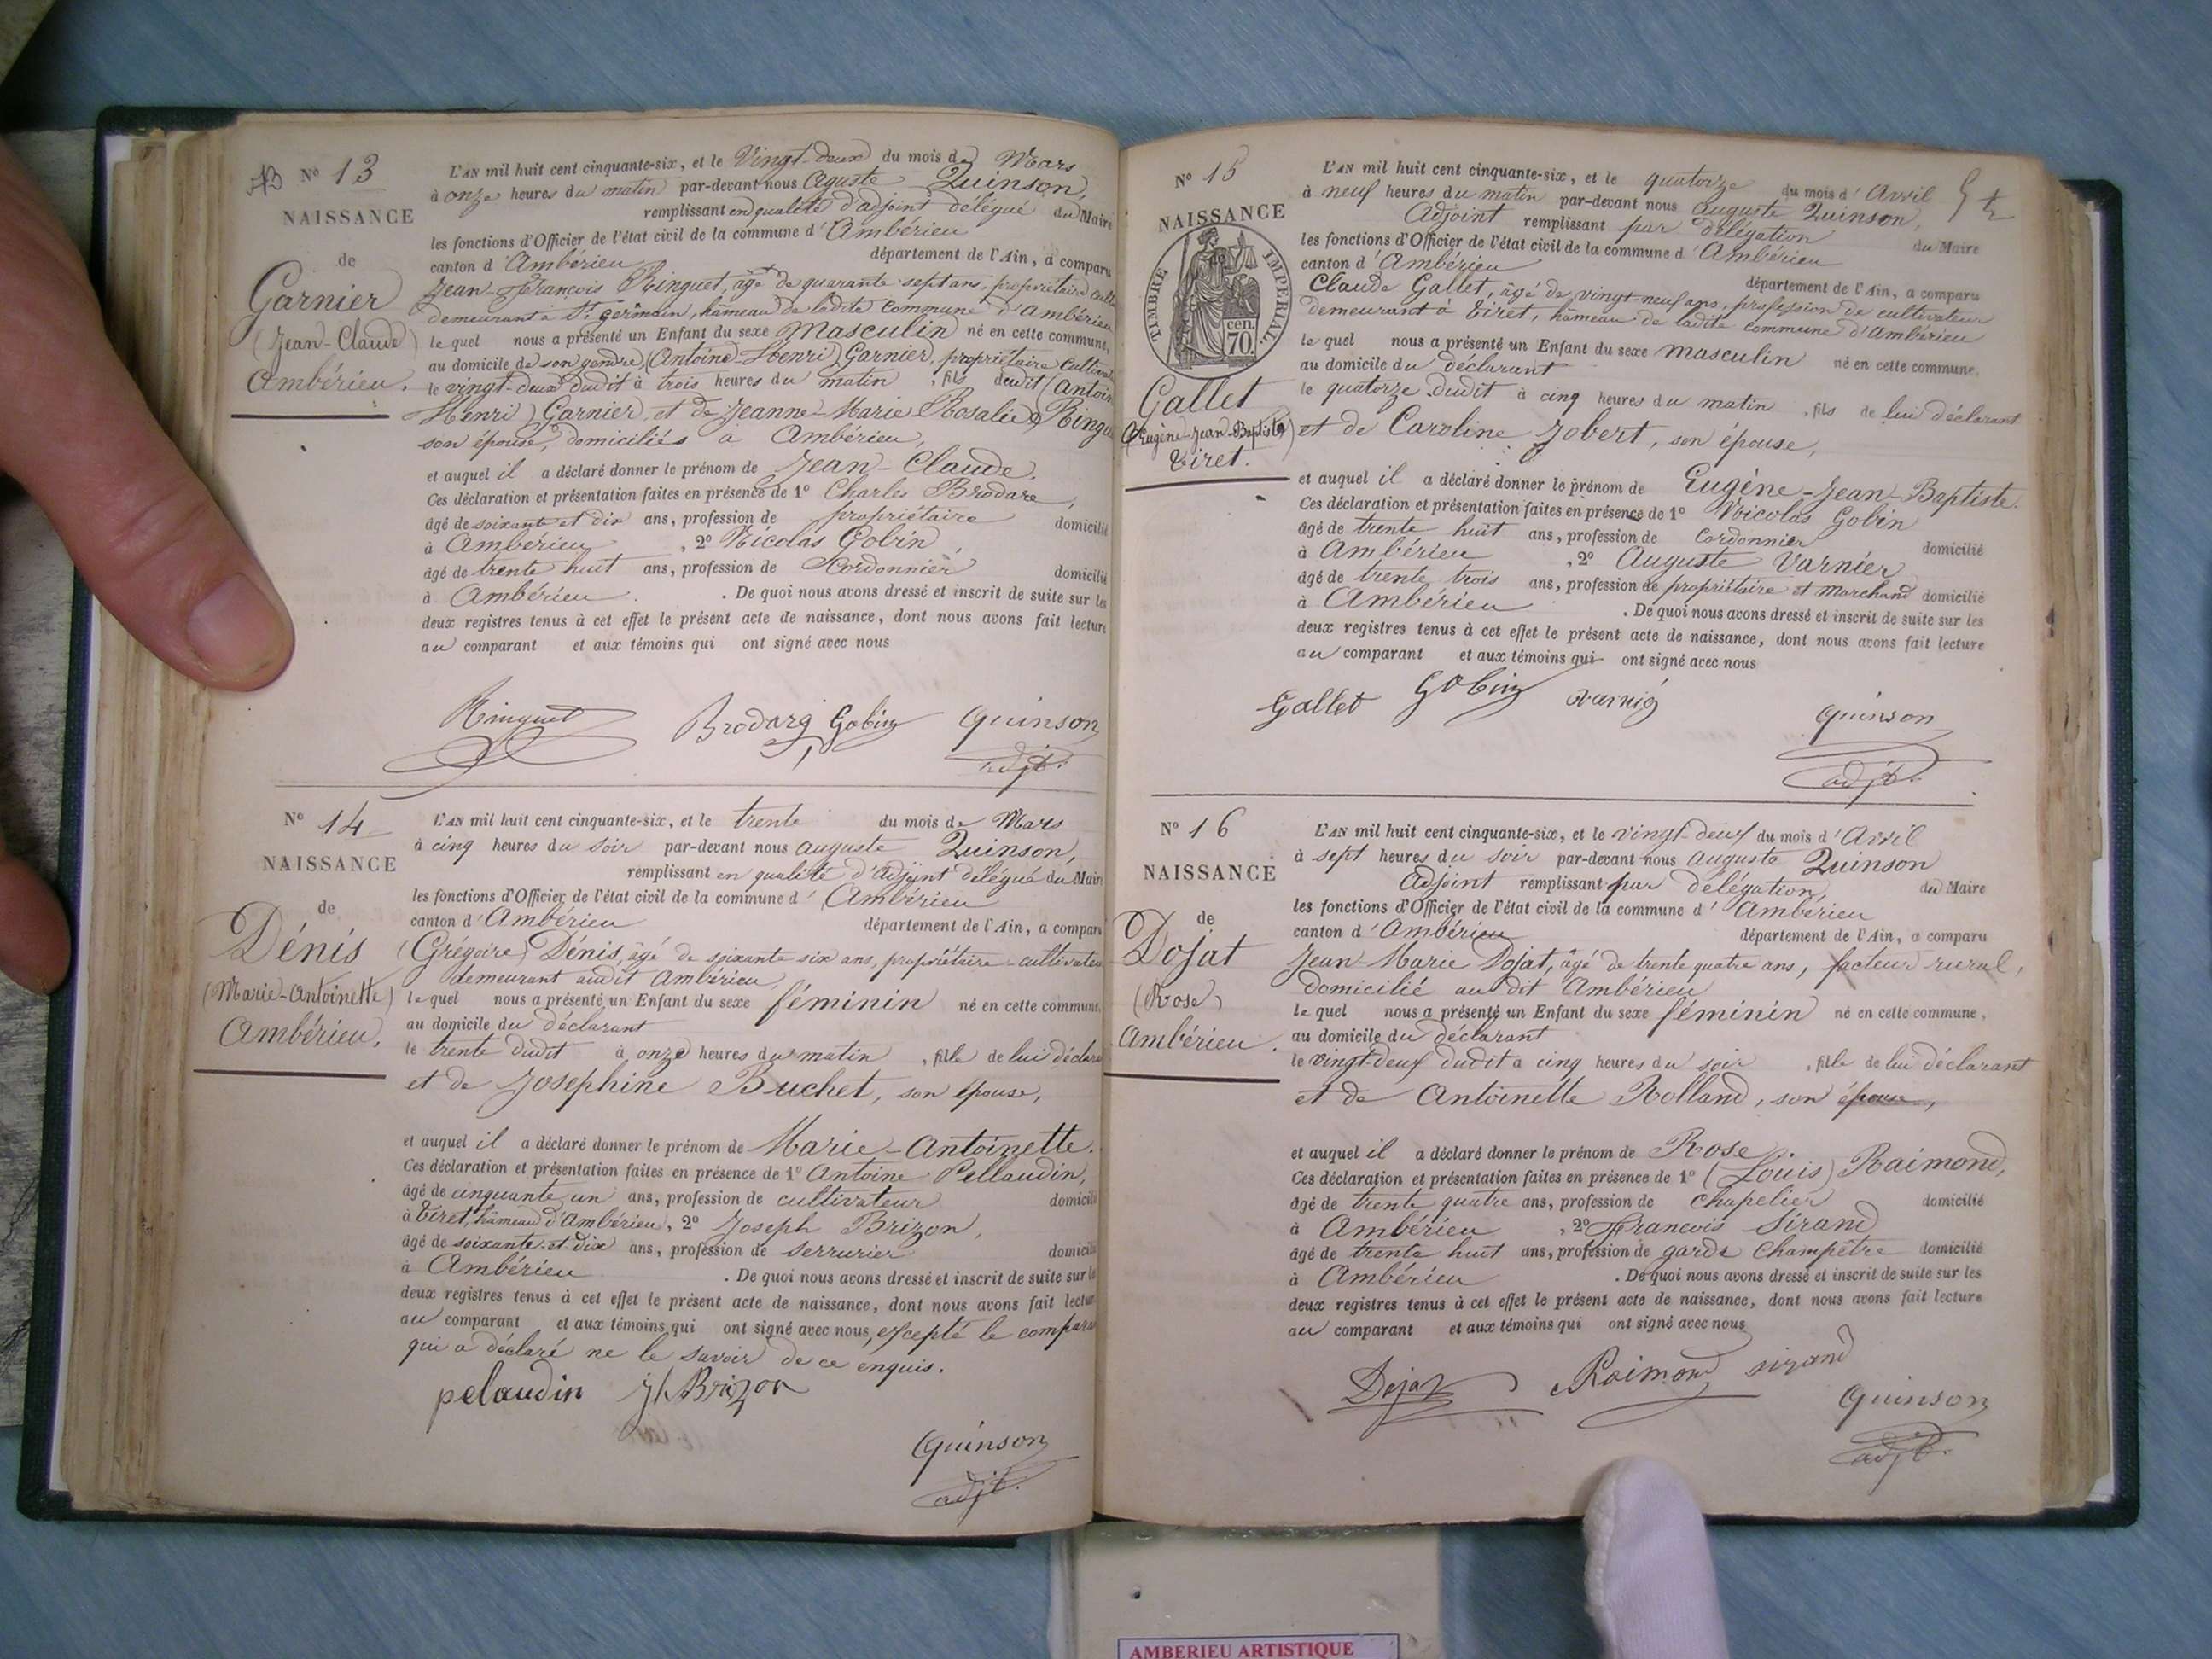 N° 13
NAISSANCE
de
Garnier
(Jean-Claude)
Ambérieu.
L'AN mil huit cent cinquante-six, et le Vingt-deux du mois de Mars
à onze heures du matin par-devant nous Aguste Quinson,
remplissant en qualité d'adjoint délégué du Maire
les fonctions d'Officier de l'état civil de la commune d'Ambérieu
canton d'Ambérieu département de l'Ain, a comparu
Jean-François Ringuet, âgé de quarante sept ans, propriétaire
demeurant à St. germain, hâmeau de ladite Commune d'Ambérieu
le quel nous a présenté un Enfant du sexe masculin né en cette commune,
au domicile de son gendre (Antoine-Henri) Garnier, propriétaire
le vingt-deux dudit à trois heures du matin, fils dudit (Antoine
Henri) Garnier et de Jeanne-Marie Rosalie Ringuet
son épouse, domiciliés à Ambérieu,
et auquel il a déclaré donner le prénom de Jean-Claude.
Ces déclaration et présentation faites en présence de 1° Charles Brodare,
âgé de soixante et dix ans, profession de propriétaire domicilié
à Ambérieu, 2° Nicolas Gobin,
âgé de trente huit ans, profession de Cordonnier domicilié
à Ambérieu. De quoi nous avons dressé et inscrit de suite sur les
deux registres tenus à cet effet le présent acte de naissance, dont nous avons fait lecture
au comparant et aux témoins qui ont signé avec nous
Ringuet Brodarg Gobin Quinson
adjt.
N° 14
NAISSANCE
de
Dénis
(Marie-Antoinette)
Ambérieu.
L'AN mil huit cent cinquante-six, et le trente du mois de Mars
à cinq heures du soir par-devant nous auguste Quinson,
remplissant en qualité d'adjoint délégué du Maire
les fonctions d'Officier de l'état civil de la commune d'Ambérieu
canton d'Ambérieu département de l'Ain, a comparu
(Grégoire) Dénis, âgé de soixante six ans, propriétaire-cultivateur
demeurant audit Ambérieu,
le quel nous a présenté un Enfant du sexe féminin né en cette commune,
au domicile du déclarant
le trente dudit à onze heures du matin, fille de lui déclarant
et de Josephine Buchet, son épouse,
et auquel il a déclaré donner le prénom de Marie-Antoinette.
Ces déclaration et présentation faites en présence de 1° Antoine Pellaudin,
âgé de cinquante un ans, profession de cultivateur domicilié
à Tiret, hâmeau d'Ambérieu, 2° Joseph Brizon,
âgé de soixante et dix ans, profession de serrurier domicilié
à Ambérieu. De quoi nous avons dressé et inscrit de suite sur les
deux registres tenus à cet effet le présent acte de naissance, dont nous avons fait lecture
au comparant et aux témoins qui ont signé avec nous, excepté le comparant
qui a déclaré ne le savoir de ce enquis.
pelaudin Jh Brizon
Quinson
adjt.
N° 15
NAISSANCE
TIMBRE IMPERIAL
cen.
70.
Gallet
(Eugène-Jean-Baptiste)
Tiret.
L'AN mil huit cent cinquante-six, et le quatorze du mois d'Avril
à neuf heures du matin par-devant nous auguste Quinson,
Adjoint remplissant par délégation du Maire
les fonctions d'Officier de l'état civil de la commune d'Ambérieu
canton d'Ambérieu département de l'Ain, a comparu
Claude Gallet, âgé de vingt-neuf ans, profession de cultivateur
demeurant à Tiret, hâmeau de ladite commune d'Ambérieu
le quel nous a présenté un Enfant du sexe masculin né en cette commune,
au domicile du déclarant
le quatorze dudit à cinq heures du matin, fils de lui déclarant
et de Caroline Jobert, son épouse,
et auquel il a déclaré donner le prénom de Eugène-Jean-Baptiste.
Ces déclaration et présentation faites en présence de 1° Nicolas Gobin
âgé de trente huit ans, profession de Cordonnier domicilié
à Ambérieu, 2° Auguste Varnier
âgé de trente trois ans, profession de propriétaire et Marchand domicilié
à Ambérieu. De quoi nous avons dressé et inscrit de suite sur les
deux registres tenus à cet effet le présent acte de naissance, dont nous avons fait lecture
au comparant et aux témoins qui ont signé avec nous
Gallet Gobin Quinson
adjt.
N° 16
NAISSANCE
de
Dojat
(Rose)
Ambérieu.
L'AN mil huit cent cinquante-six, et le vingt-deux du mois d'Avril
à sept heures du soir par-devant nous auguste Quinson
Adjoint remplissant par délégation du Maire
les fonctions d'Officier de l'état civil de la commune d'Ambérieu
canton d'Ambérieu département de l'Ain, a comparu
Jean-Marie Dojat, âgé de trente quatre ans, facteur rural,
domicilié au dit Ambérieu
le quel nous a présenté un Enfant du sexe féminin né en cette commune,
au domicile du déclarant
le vingt-deux dudit à cinq heures du soir, fille de lui déclarant
et de Antoinette Rolland, son épouse,
et auquel il a déclaré donner le prénom de Rose
Ces déclaration et présentation faites en présence de 1° (Louis) Raimond,
âgé de trente quatre ans, profession de chapelier domicilié
à Ambérieu, 2° François Sirand
âgé de trente huit ans, profession de garde Champêtre domicilié
à Ambérieu. De quoi nous avons dressé et inscrit de suite sur les
deux registres tenus à cet effet le présent acte de naissance, dont nous avons fait lecture
au comparant et aux témoins qui ont signé avec nous
Dojat Raimond sirand
Quinson
adjt.
AMBERIEU ARTISTIQUE